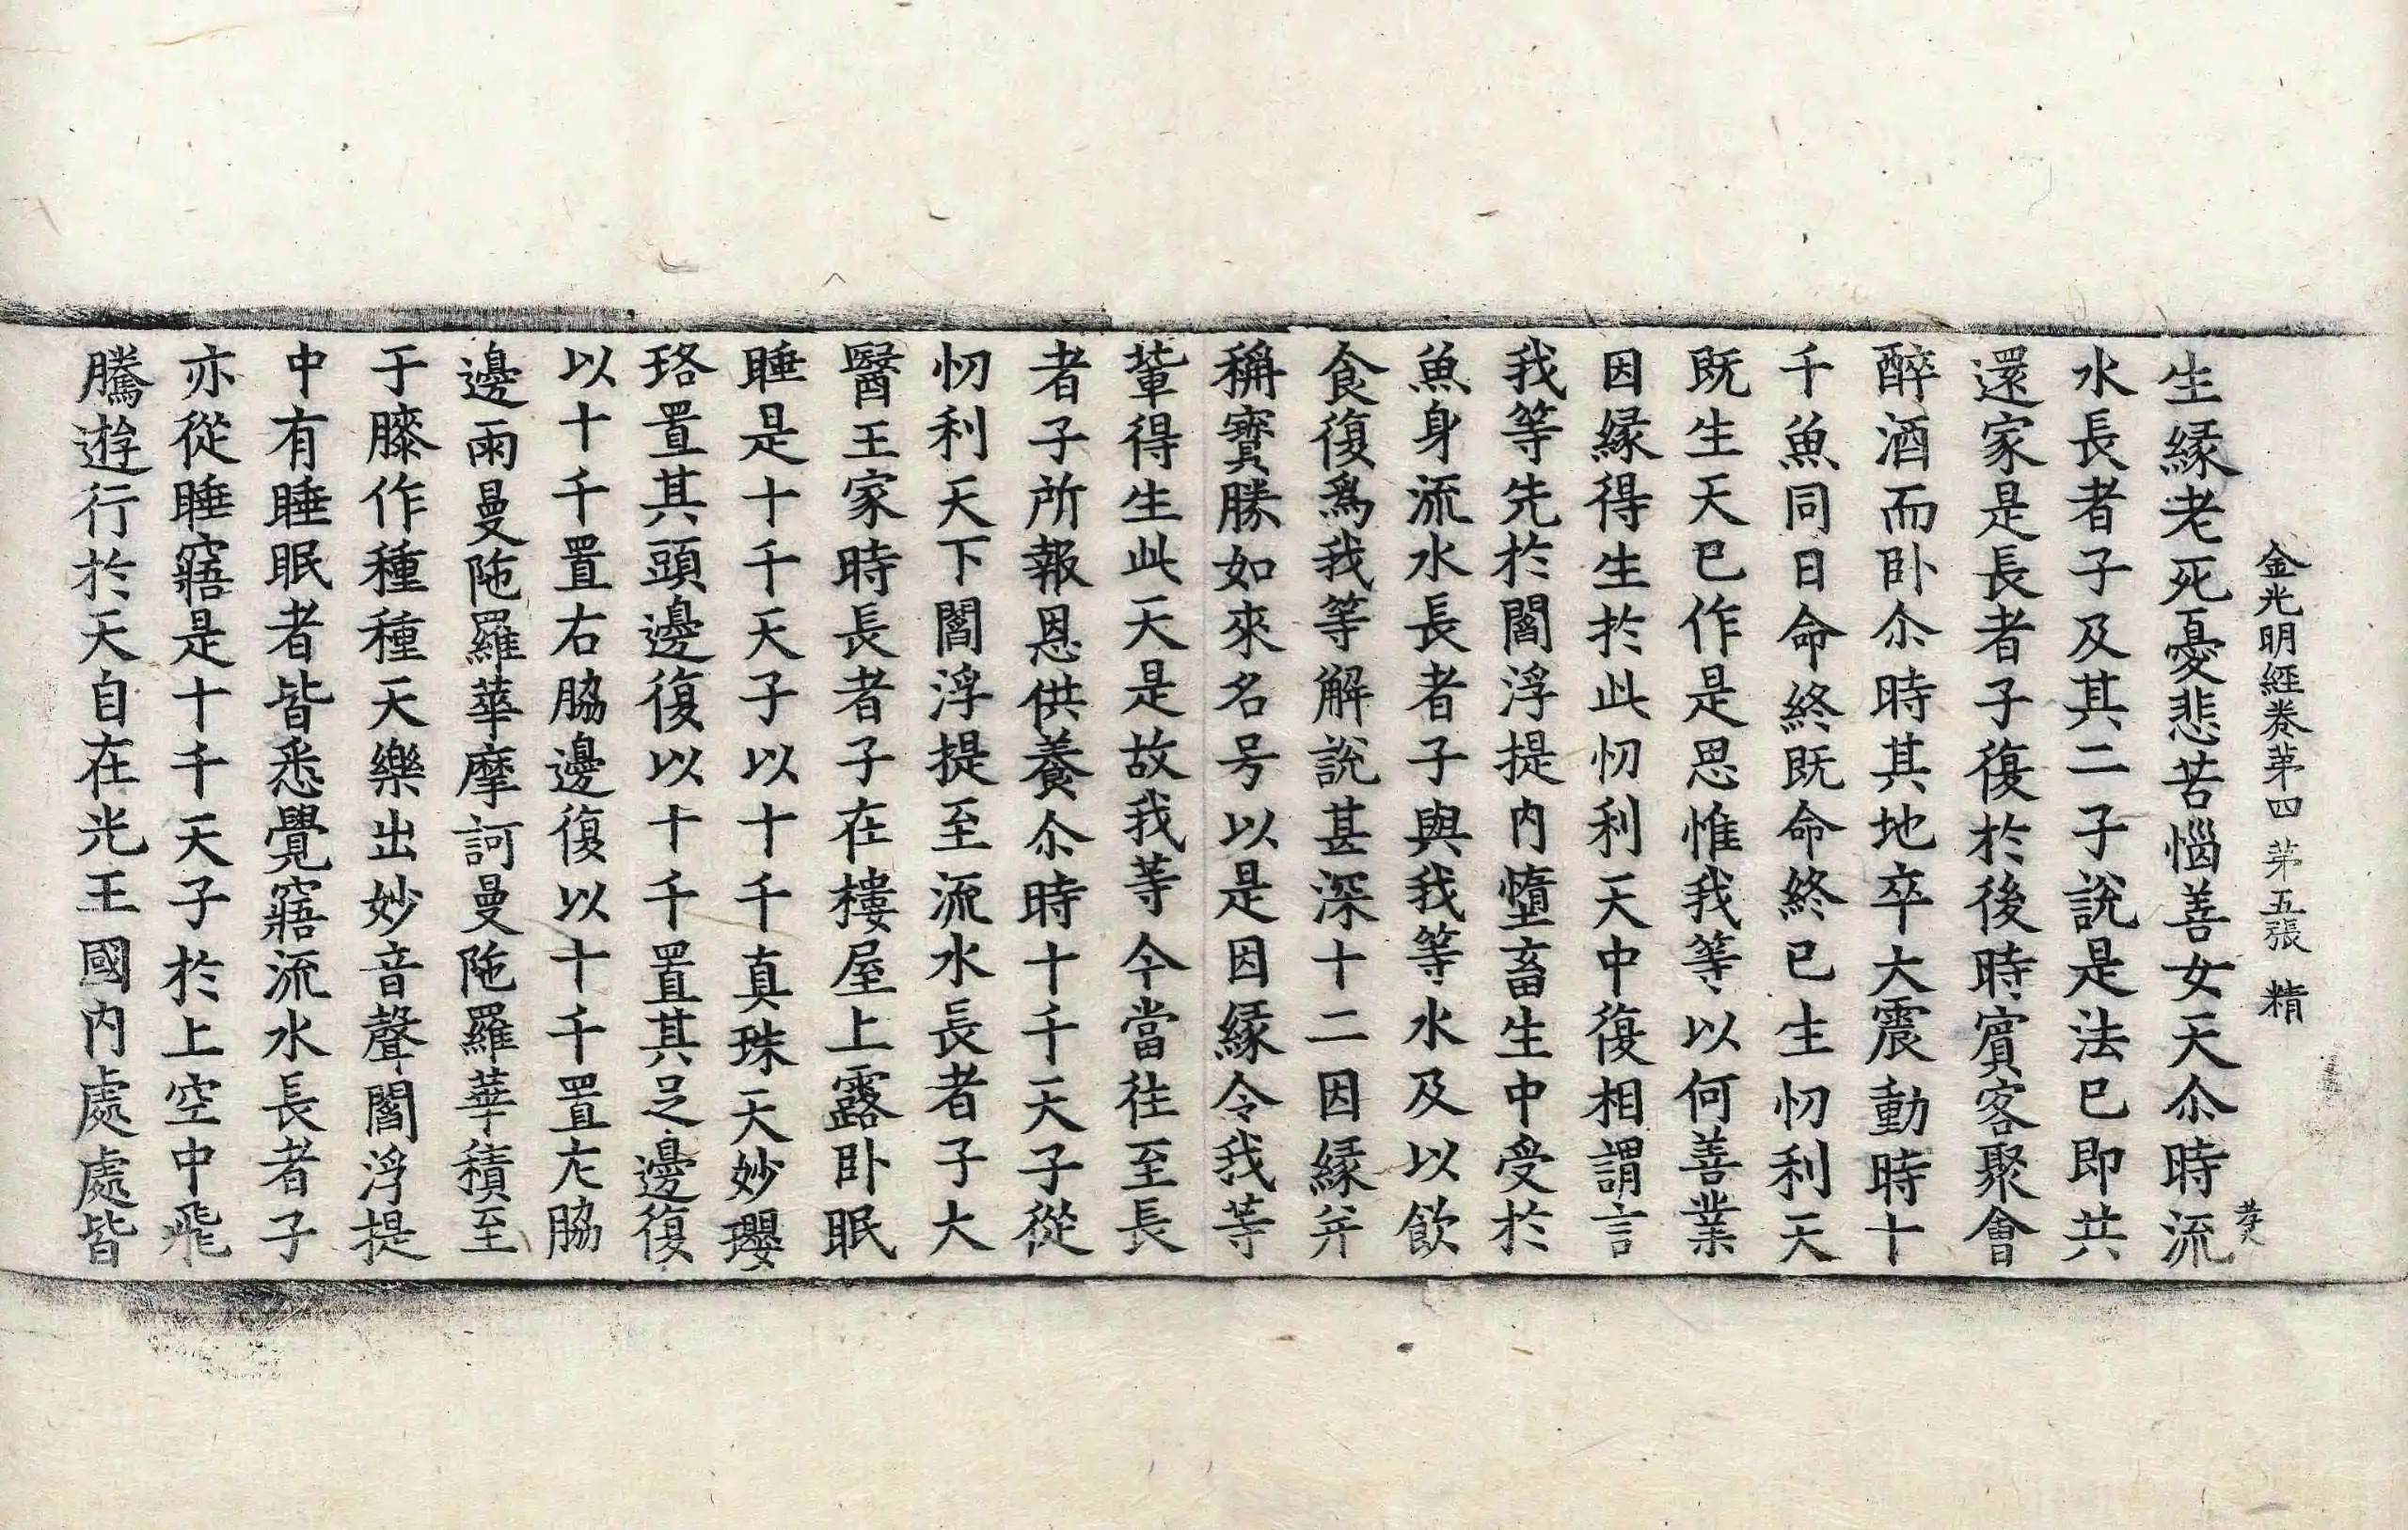 金光明經卷苐四 苐五張 精
生縁老死憂悲苦惱善女天尒時流
水長者子及其二子說是法已即共
還家是長者子復於後時賔客聚會
醉酒而卧尒時其地卒大震動時十
千魚同日命終既命終已生忉利天
既生天已作是思惟我等以何善業
因縁得生於此忉利天中復相謂言
我等先於閻浮提内墮畜生中受於
魚身流水長者子與我等水及以飲
食復爲我等解說甚深十二因縁并
稱寳勝如來名号以是因縁令我等
軰得生此天是故我等今當往至長
者子所報恩供養尒時十千天子從
忉利天下閻浮提至流水長者子大
醫王家時長者子在樓屋上露卧眠
睡是十千天子以十千真珠天妙瓔
珞置其頭邊復以十千置其足邊復
以十千置右脇邊復以十千置左脇
邊雨曼陁羅華摩訶曼陁羅華積至
于膝作種種天樂出妙音聲閻浮提
中有睡眠者皆悉覺寤流水長者子
亦從睡寤是十千天子於上空中飛
騰遊行於天自在光王國内處處皆